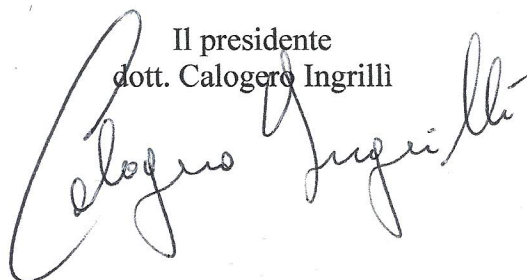 Il presidente
dott. Calogero Ingrillì
Calogero Ingrillì